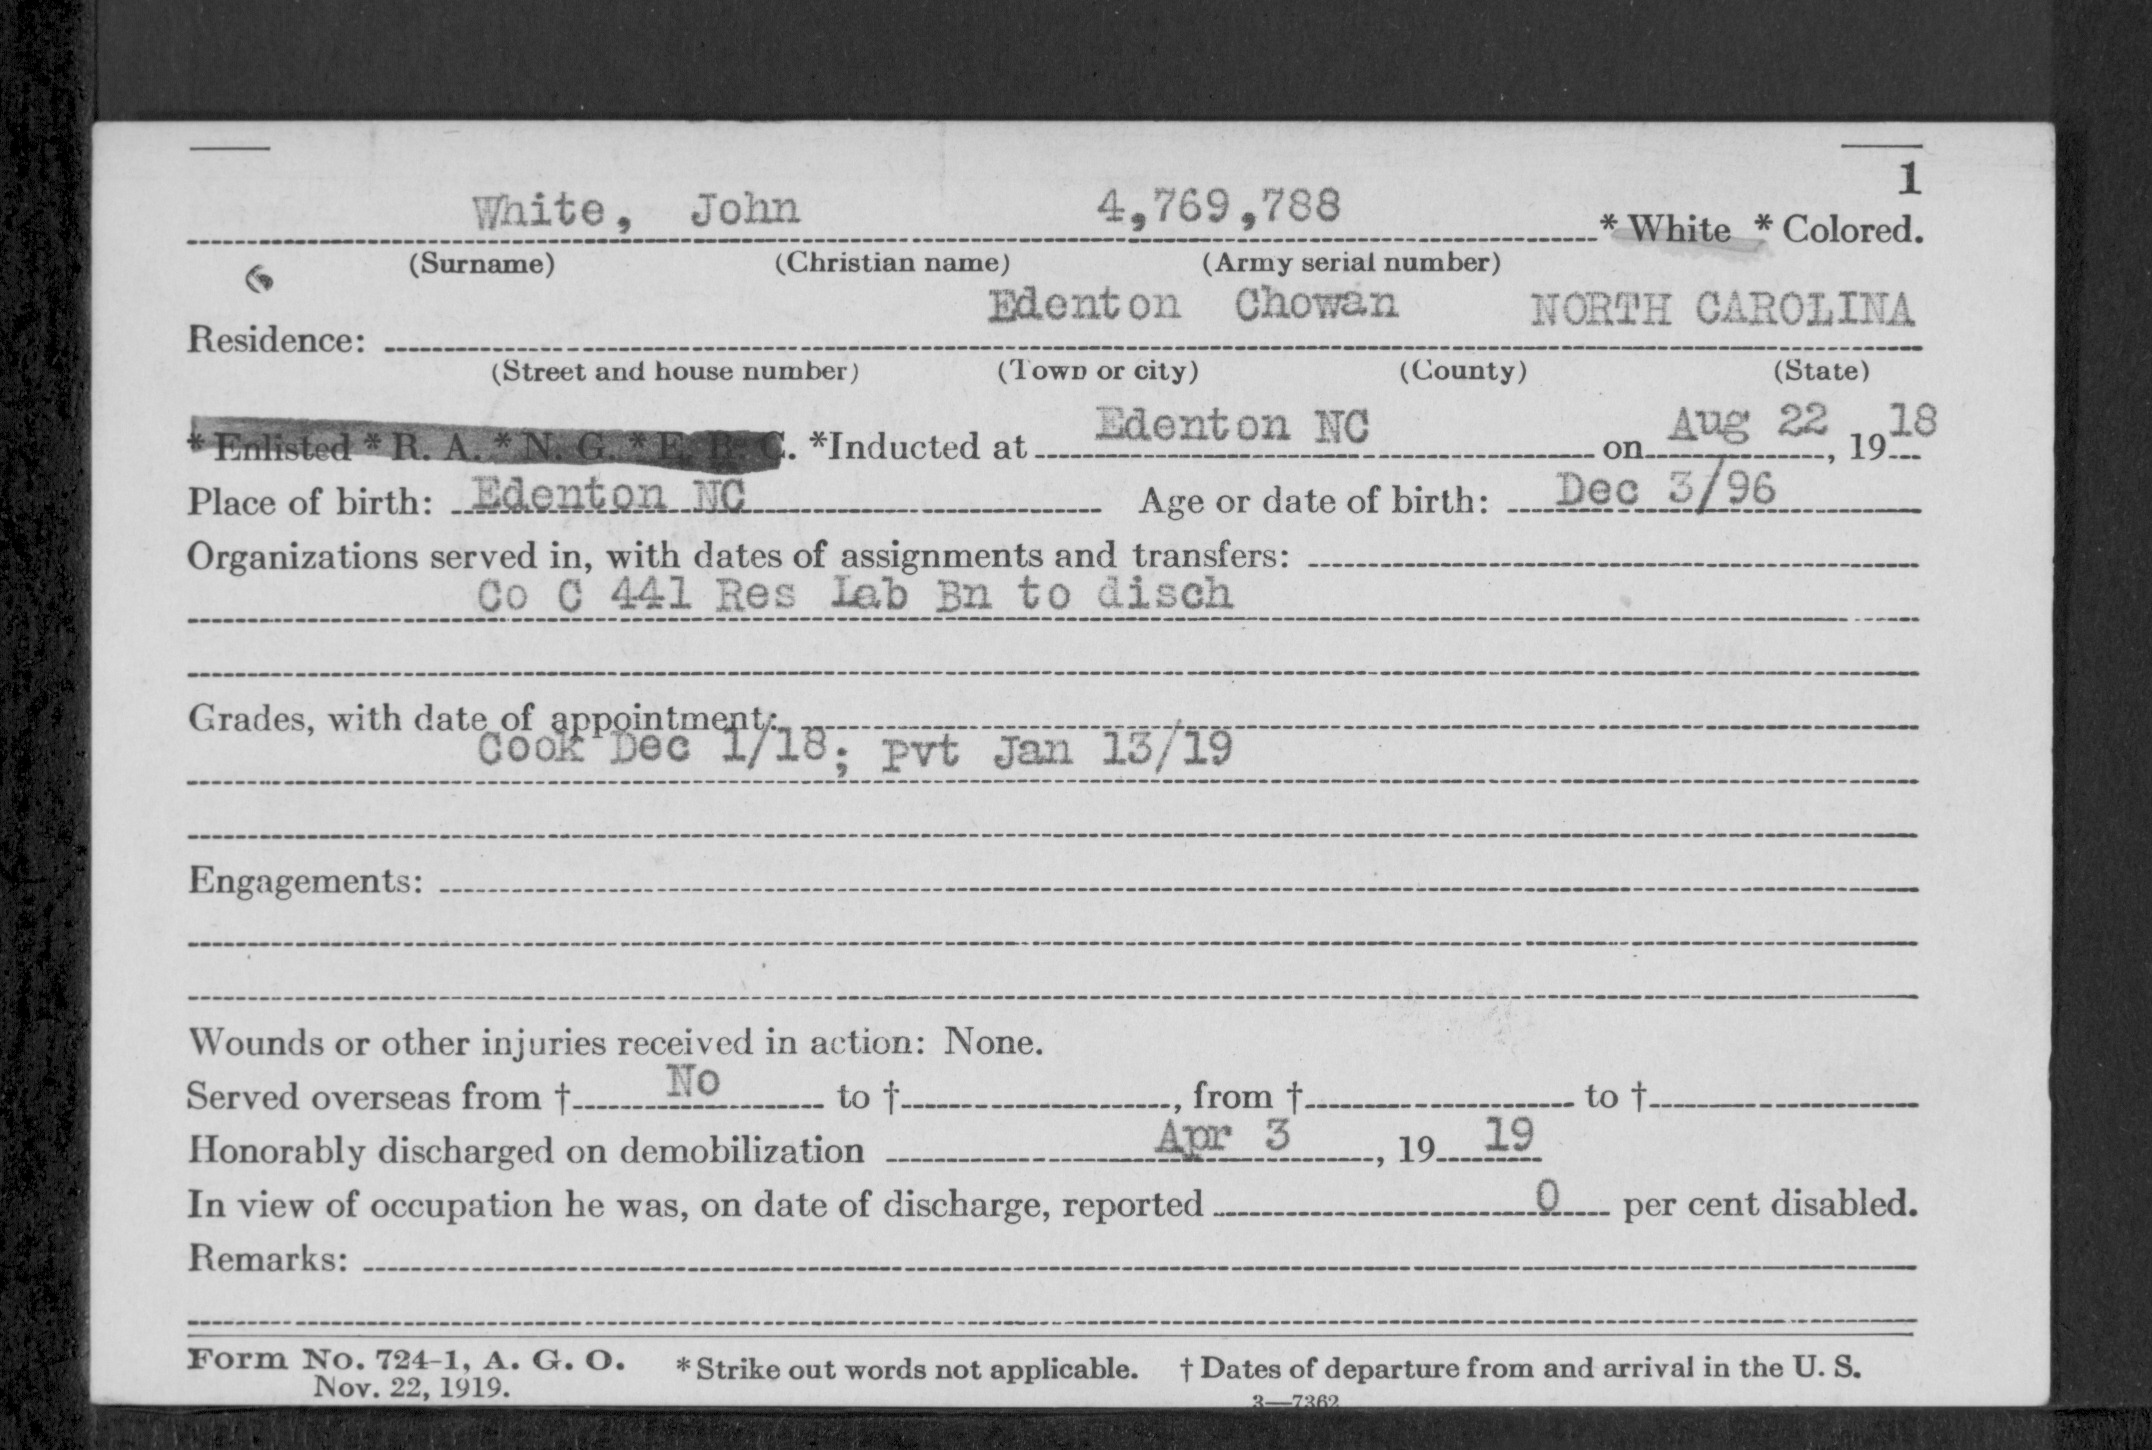 1
White, John 4,769,788 * White * Colored.
(Surname) (Christian name) (Army serial number)
Edenton Chowan NORTH CAROLINA
Residence:
(Street and house number) (Town or city) (County) (State)
* Enlisted * R. A. * N. G. * E. R. C. *Inducted at Edenton NC on Aug 22, 1918
Place of birth: Edenton NC Age or date of birth: Dec 3/96
Organizations served in, with dates of assignments and transfers:
Co C 441 Res Lab Bn to disch
Grades, with date of appointment:
Cook Dec 1/18; Pvt Jan 13/19
Engagements:
Wounds or other injuries received in action: None.
Served overseas from † No to †, from † to †
Honorably discharged on demobilization Apr 3, 19 19
In view of occupation he was, on date of discharge, reported 0 per cent disabled.
Remarks:
Form No. 724-1, A. G. O. * Strike out words not applicable. † Dates of departure from and arrival in the U. S.
Nov. 22, 1919.
3—7362